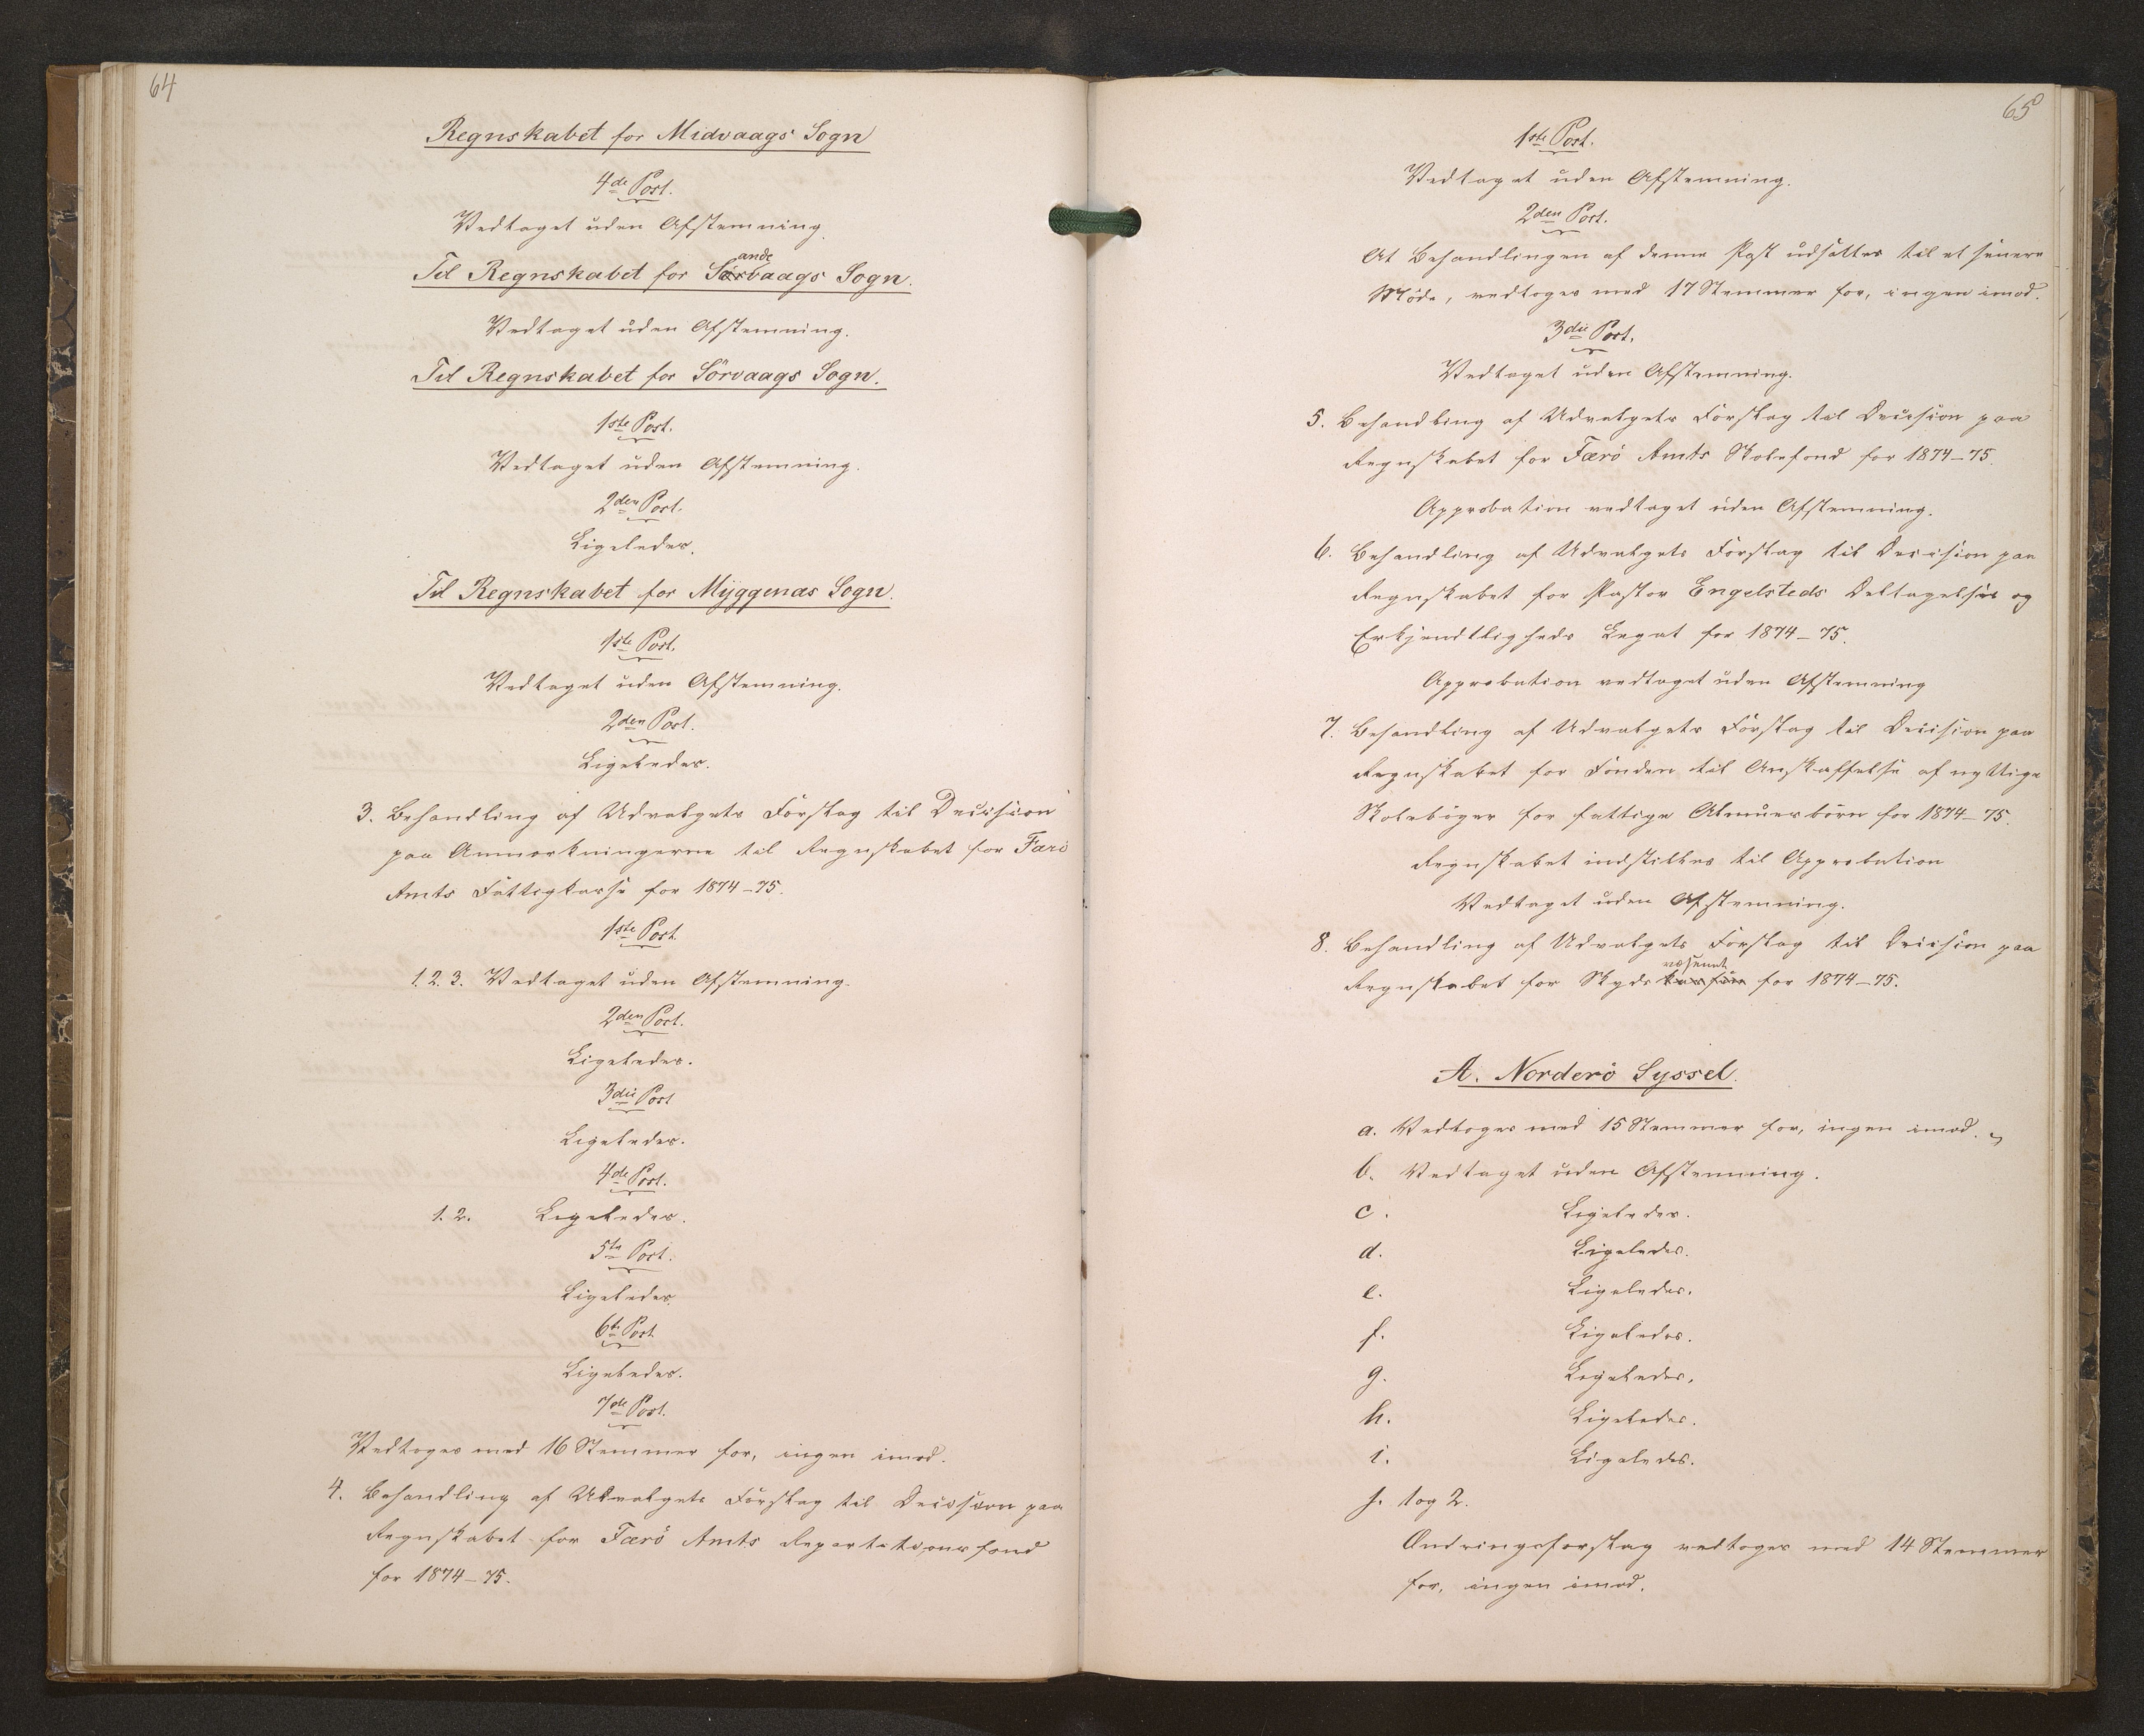 64
Regnskabet for Midvaags Sogn
4de Post.
Vedtaget uden Afstemning.
ande
Til Regnskabet for Sörvaags Sogn.
Vedtaget uden Afstemning.
Til Regnskabet for Sörvaags Sogn.
1ste Post.
Vedtaget uden Afstemning.
2den Post.
Ligeledes.
Til Regnskabet for Myggenæs Sogn.
1ste Post.
Vedtaget uden Afstemning.
2den Post.
Ligeledes.
3. Behandling af Udvalgets Forslag til Decision
paa Anmærkningerne til Regnskabet for Færö
Amts Fattigkasse for 1874-75.
1ste Post.
1. 2. 3. Vedtaget uden Afstemning.
2den Post.
Ligeledes.
3die Post
Ligeledes.
4de Post.
1. 2. Ligeledes.
5te Post.
Ligeledes.
6te Post
Ligeledes.
7de Post.
Vedtoges med 16 Stemmer for, ingen imod.
4. Behandling af Udvalgets Forslag til Decision paa
Regnskabet for Færö Amts Repartitionsfond
for 1874-75.
65
1ste Post.
Vedtaget uden Afstemning.
2den Post.
At Behandlingen af denne Post udsættes til et senere
Möde, vedtoges med 17 Stemmer for, ingen imod.
3die Post.
Vedtaget uden Afstemning.
5. Behandling af Udvalgets Forslag til Decision paa
Regnskabet for Færö Amts Skolefond for 1874-75.
Approbation vedtaget uden Afstemning.
6. Behandling af Udvalgets Forslag til Decision paa
Regnskabet for Pastor Engelsteds Deltagelses og
Erkjendtligheds Legat for 1874-75.
Approbation vedtaget uden Afstemning
7. Behandling af Udvalgets Forslag til Decision paa
Regnskabet for Fonden til Anskaffelse af nyttige
Skoleböger for fattige Almuesbörn for 1874-75.
Regnskabet indstilles til Approbation
Vedtaget uden Afstemning.
8. Behandling af Udvalgets Forslag til Decision paa
væsenet
Regnskabet for Skyds for 1874-75.
A. Norderö Syssel.
a. Vedtoges med 15 Stemmer for, ingen imod.
b. Vedtaget uden Afstemning.
c. Ligeledes.
d. Ligeledes.
e. Ligeledes.
f. Ligeledes.
g. Ligeledes.
h. Ligeledes.
i. Ligeledes.
j. 1 og 2.
Ændringsforslag vedtoges med 14 Stemmer
for, ingen imod.